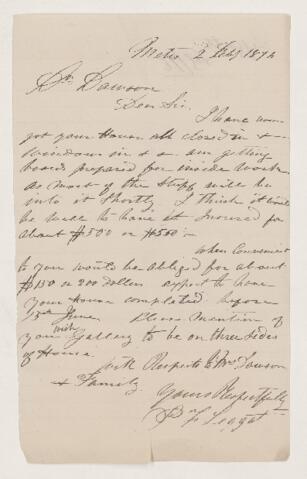 Metis 2 Feby 1874
Dr Dawson
Dear Sir.
I have now
got your House all closed in &
Windows in & am getting
boards prepared for inside work
as most of the stuff will be
into it shortly I think it would
be well to have it Insured for
about $500 or $550.
When Convenient
to you would be obliged for about
$150 or 200 dollars expect to have
your House completed before
15th June. Please mention if
you wish Gallery to be on three sides
of House.
with Respects to Mrs Dawson
& Family
Yours Respectfully